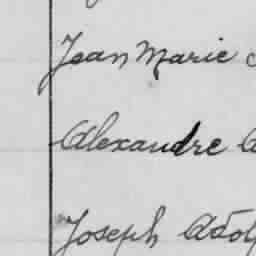 Jean Marie
Alexandre
Joseph Adol